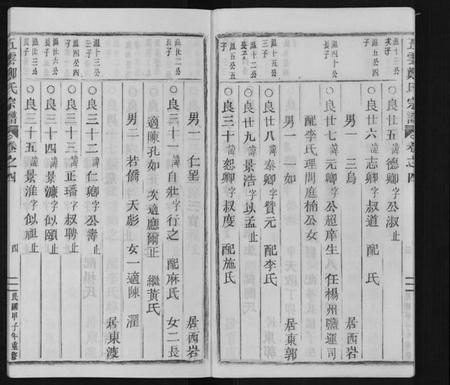 五雲鄭氏宗譜 卷之四
〇良廿五 諱德卿 字公淑 止
〇良廿六 諱志卿 字叔道 配 氏
男一 三烏
〇良廿七 諱元卿 字公超 庠生 人任楊州鹽運司
配李氏理問庭楠公女 居西岩
〇良廿八 諱泰卿 字贊元 配李氏
男一 一如 居東郭
〇良廿九 諱景浩 字以孟 止
〇良三十 諱恕卿 字叔度 配施氏
男一 仁望 居西岩
〇良三十一 諱自壯 字行之 配麻氏 女二長
適陳孔如 次適廳爾正 繼黃氏
男二 若僑 天彪 女一適陳 濯
居東渡
〇良三十二 諱仁卿 字公壽 止
〇良三十三 諱正璠 字叔聘 止
〇良三十四 諱景濂 字似頤 止
〇良三十五 諱景淮 字似祖 止
五雲鄭氏宗譜 卷之四 四 民國甲子年重修